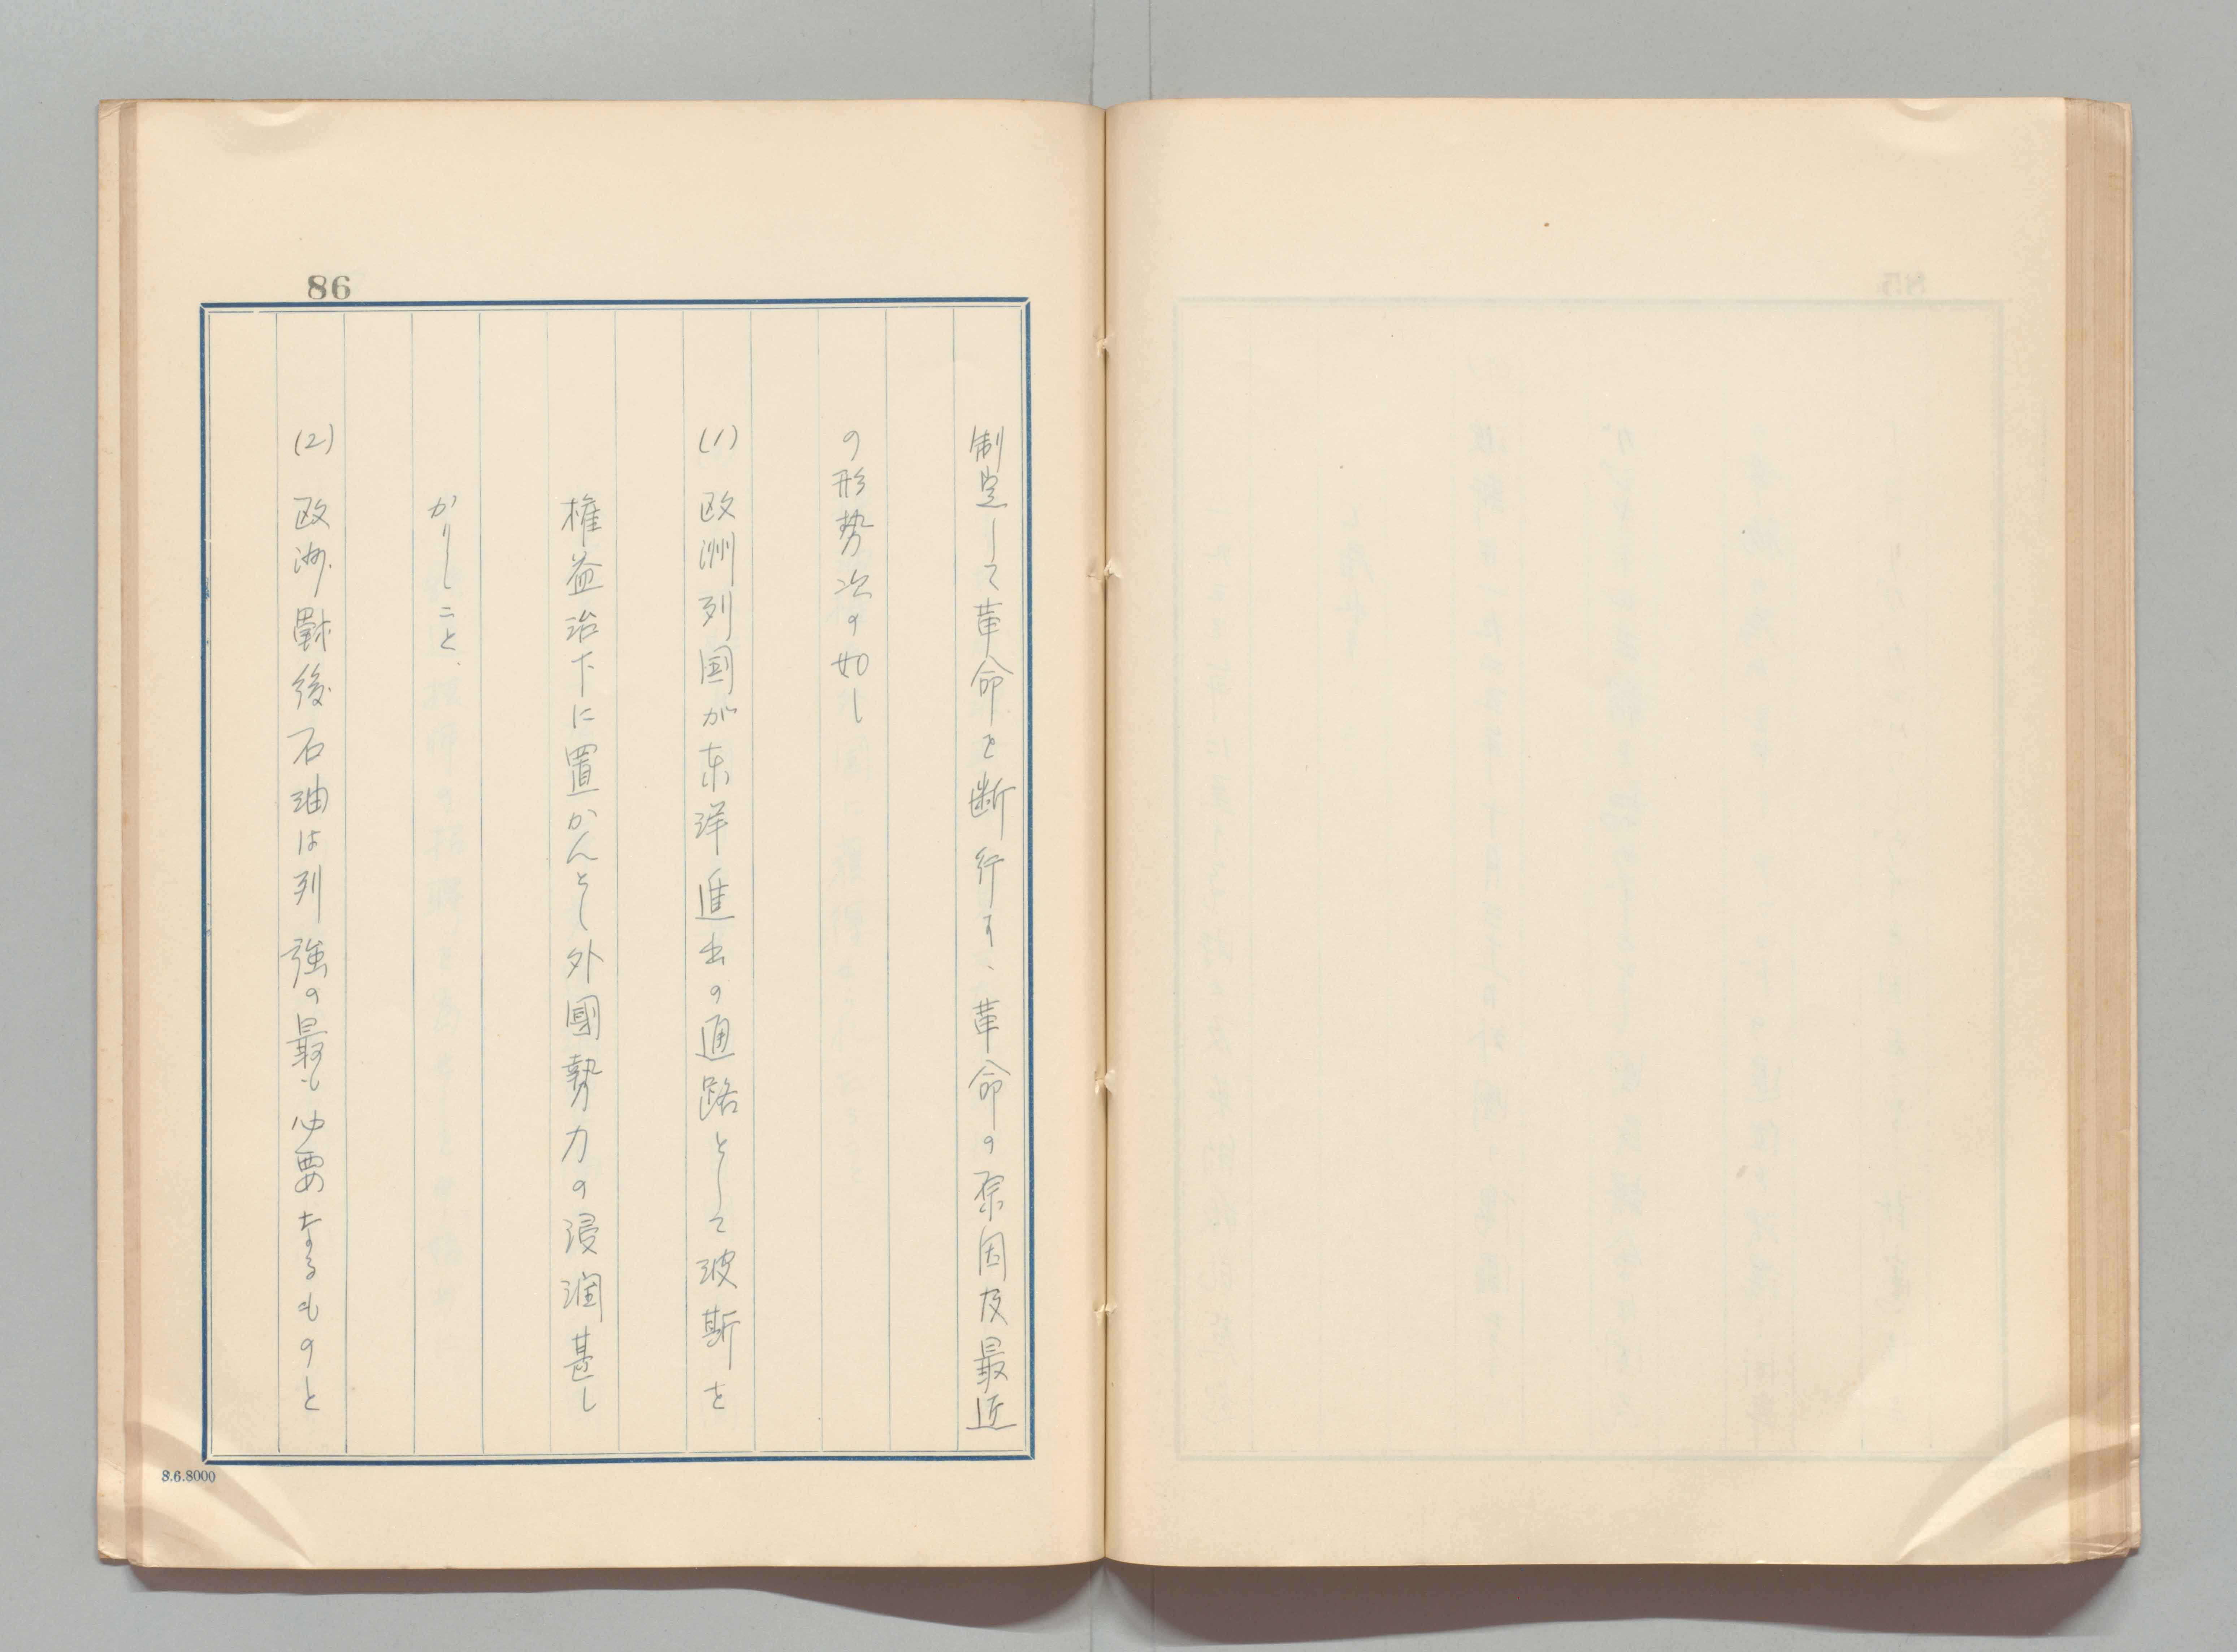 86
制定して革命を断行す、革命の原因及最近
の形勢次の如し
(1) 欧洲列国が东洋進出の通路として波斯を
権益治下に置かんとし外國勢力の浸潤甚し
かりしこと、
(2) 欧洲戦後石油は列強の最も必要なるものと
8.6.8000